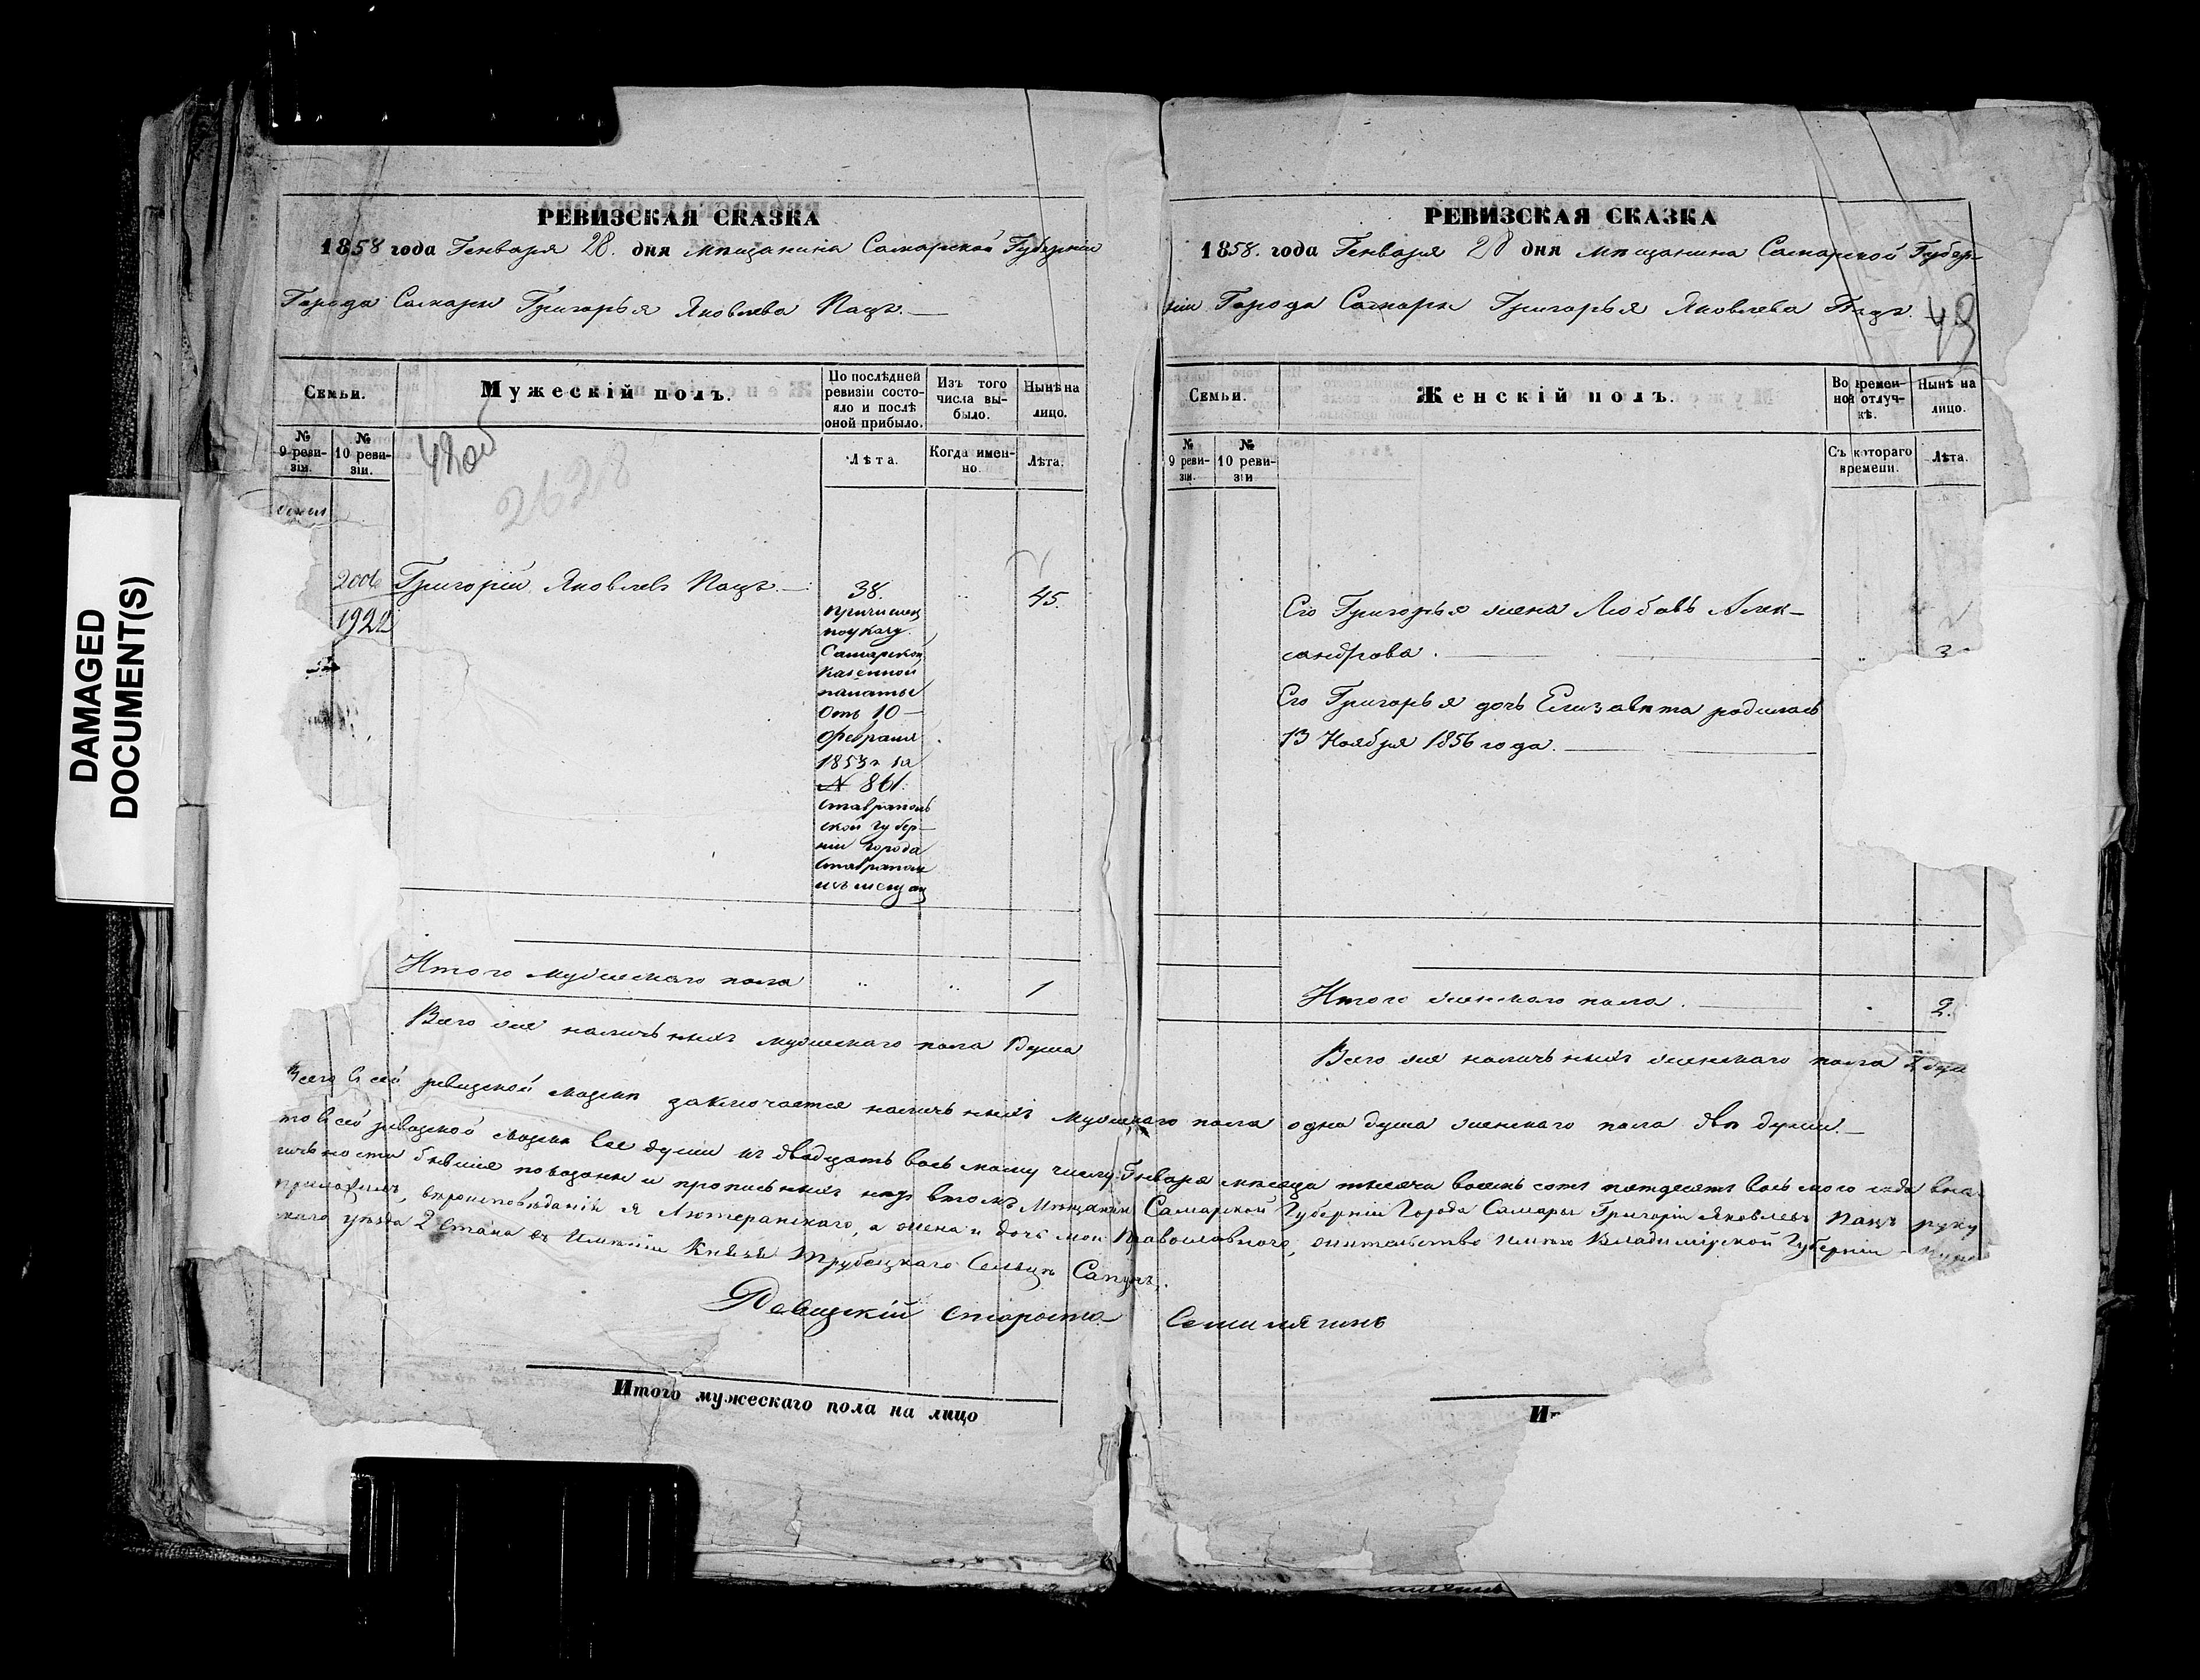 DAMAGED
DOCUMENT(S)
РЕВИЗСКАЯ СКАЗКА
1858 года Генваря 28. дня мѣщанина Самарской Губерніи
Города Самары Григорья Яковлева Пацъ.
Семьи.
Мужескій полъ.
По послѣдней ревизіи состояло и послѣ оной прибыло.
Изъ того числа выбыло.
Нынѣ на лицо.
№ 9 ревизіи.
№ 10 ревизіи.
Лѣта.
Когда именно.
Лѣта.
48об
2628
2006
1922
Григорій Яковлевъ Пацъ.
38.
45.
причислен
по указу
Самарской
казенной
палаты
отъ 10
февраля
1853 г за
№ 861.
Ставрополь
ской губер-
ніи города
Ставрополя
изъ мещан
Итого мужескаго пола
1
Всего же наличьныхъ мужескаго пола 1 душа
РЕВИЗСКАЯ СКАЗКА
1858. года Генваря 28 дня мѣщанина Самарской Губер-
ніи Города Самары Григорья Яковлева Пацъ.
49
Семьи.
Женскій полъ.
Во временной отлучкѣ.
Нынѣ на лицо.
№ 9 ревизіи.
№ 10 ревизіи
Съ котораго времени.
Лѣта.
Его Григорья жена Любовь Алек-
сандрова.
3
Его Григорья дочь Елизавета родилась
13 Ноября 1856 года.
Итого женскаго пола.
2.
Всего же наличьныхъ женскаго пола 2 душ
Всего в сей ревизской сказки заключается наличьныхъ мужескаго пола одна душа женскаго пола двѣ души.
то в сей ревизской сказки все души къ двадцать восьмому числу Генваря месяца тысяча восемь сотъ пятдесятъ восьмого года вна-
личьности бывшие показаны и прописныхъ нетъ втомъ Мѣщанинъ Самарской Губерніи Города Самары Григорій Яковлевъ Пацъ руку
приложилъ, вероисповѣданій я Лютеранскаго, а жена и дочь мои Православнаго, жительство имѣю Владимірской Губерніи
скаго уѣзда 2 стана въ имѣніи Князя Трубецкаго Сельцѣ Сапунъ.
Ревизскій староста Семилягинъ
Итого мужескаго пола на лицо